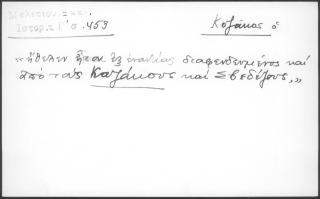 Μελετίου Ἐκκλ.
Ἱστορ. τ. Γ' σ. 453
Κοζάκος ὁ
«ἤθελεν ἦσαι ἐξ ἐναντίας διαφενδευμένος καὶ
ἀπὸ τοὺς Καζάκους καὶ Σβεδέζους,»